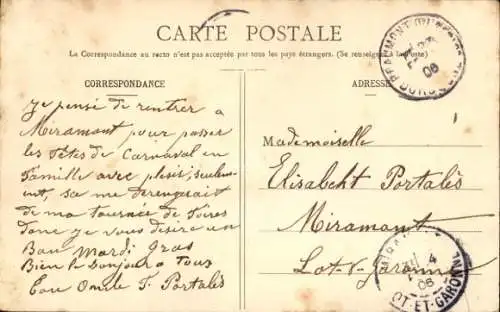 CARTE POSTALE
La Correspondance au recto n'est pas acceptée par tous les pays étrangers. (Se renseigner à la Poste)
CORRESPONDANCE
ADRESSE
Je pensé de rentrer a
Miramont pour passer
les Fêtes de Carnaval en
Famille avec plesir, seulem-
ent, sa me derengerait
de ma tournée de Foires
donc je vous désire un
Bon Mardi Gras
Bien le bonjour a Tous
Ton Oncle F. Portalès
Mademoiselle
Elisabeht Portalès
Miramont
Lot-&-Garonne
BEAUMONT-DU-PÉRIGORD
06
DORDOGNE
4
06
LOT-ET-GARONNE